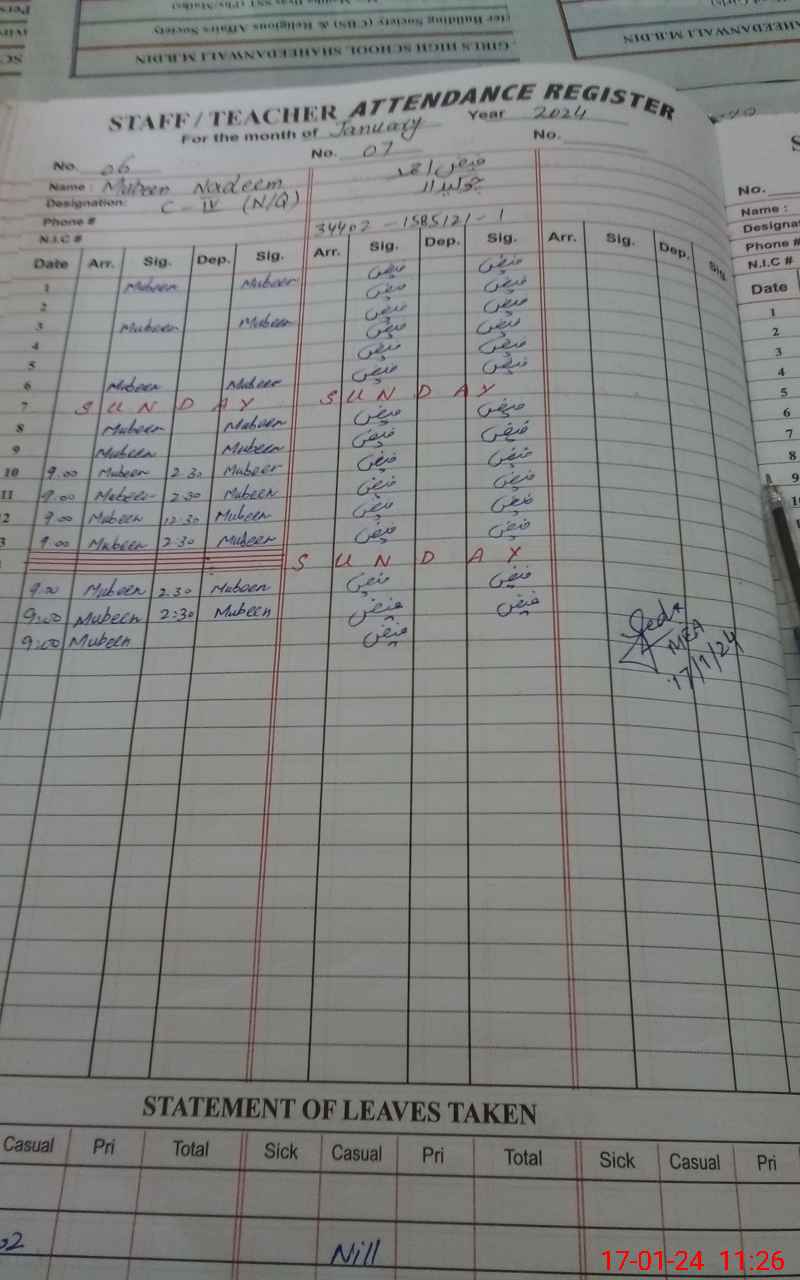 GIRLS HIGH SCHOOL SHAHEEDANWALI M.B.DIN
STAFF / TEACHER ATTENDANCE REGISTER
For the month of January Year 2024
No. 06 No. 07 No.
Name : Mubeen Nadeem فیض احمد
Designation: C - IV (N/Q) چوکیدار
Phone #
N.I.C # 34402-1585121-1
Date Arr. Sig. Dep. Sig. Arr. Sig. Dep. Sig. Arr. Sig. Dep. Sig.
1 Mubeen Mubeen فیض فیض
2 فیض فیض
3 Mubeen Mubeen فیض فیض
4 فیض فیض
5 فیض فیض
6 Mubeen Mubeen فیض فیض
7 SUNDAY SUNDAY
8 Mubeen Mubeen فیض فیض
9 Mubeen Mubeen فیض فیض
10 9:00 Mubeen 2:30 Mubeen فیض فیض
11 9:00 Mubeen 2:30 Mubeen فیض فیض
2 9:00 Mubeen 12:30 Mubeen فیض فیض
3 9:00 Mubeen 2:30 Mubeen فیض فیض
SUNDAY
9:00 Mubeen 2:30 Mubeen فیض فیض
9:00 Mubeen 2:30 Mubeen فیض فیض
9:00 Mubeen فیض
MEA
17/1/24
STATEMENT OF LEAVES TAKEN
Casual Pri Total Sick Casual Pri Total Sick Casual Pri
02 Nill
No.
Name :
Designa
Phone #
N.I.C #
Date
1
2
3
4
5
6
7
8
9
10
17-01-24 11:26